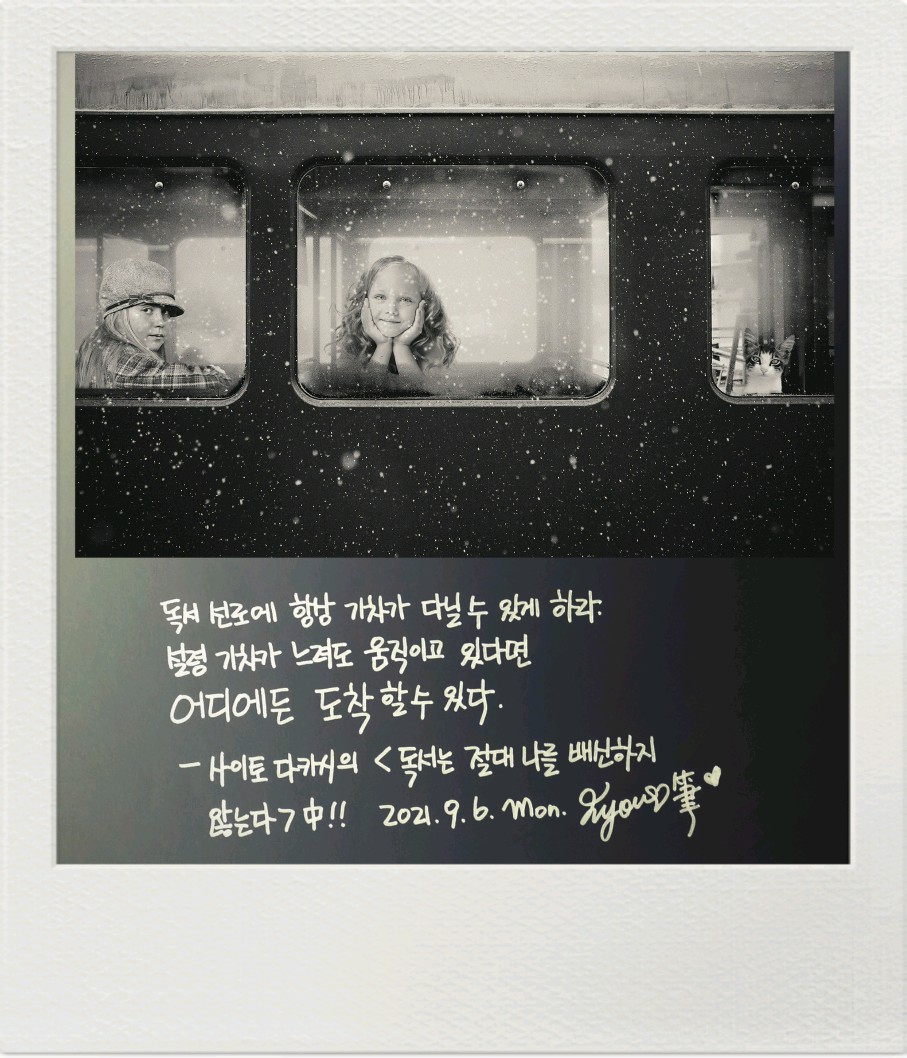 독서 선로에 항상 기차가 다닐 수 있게 하라.
설령 기차가 느려도 움직이고 있다면
어디에든 도착할 수 있다.
- 사이토 다카시의 <독서는 절대 나를 배신하지
않는다> 中!! 2021. 9. 6. Mon. 筆